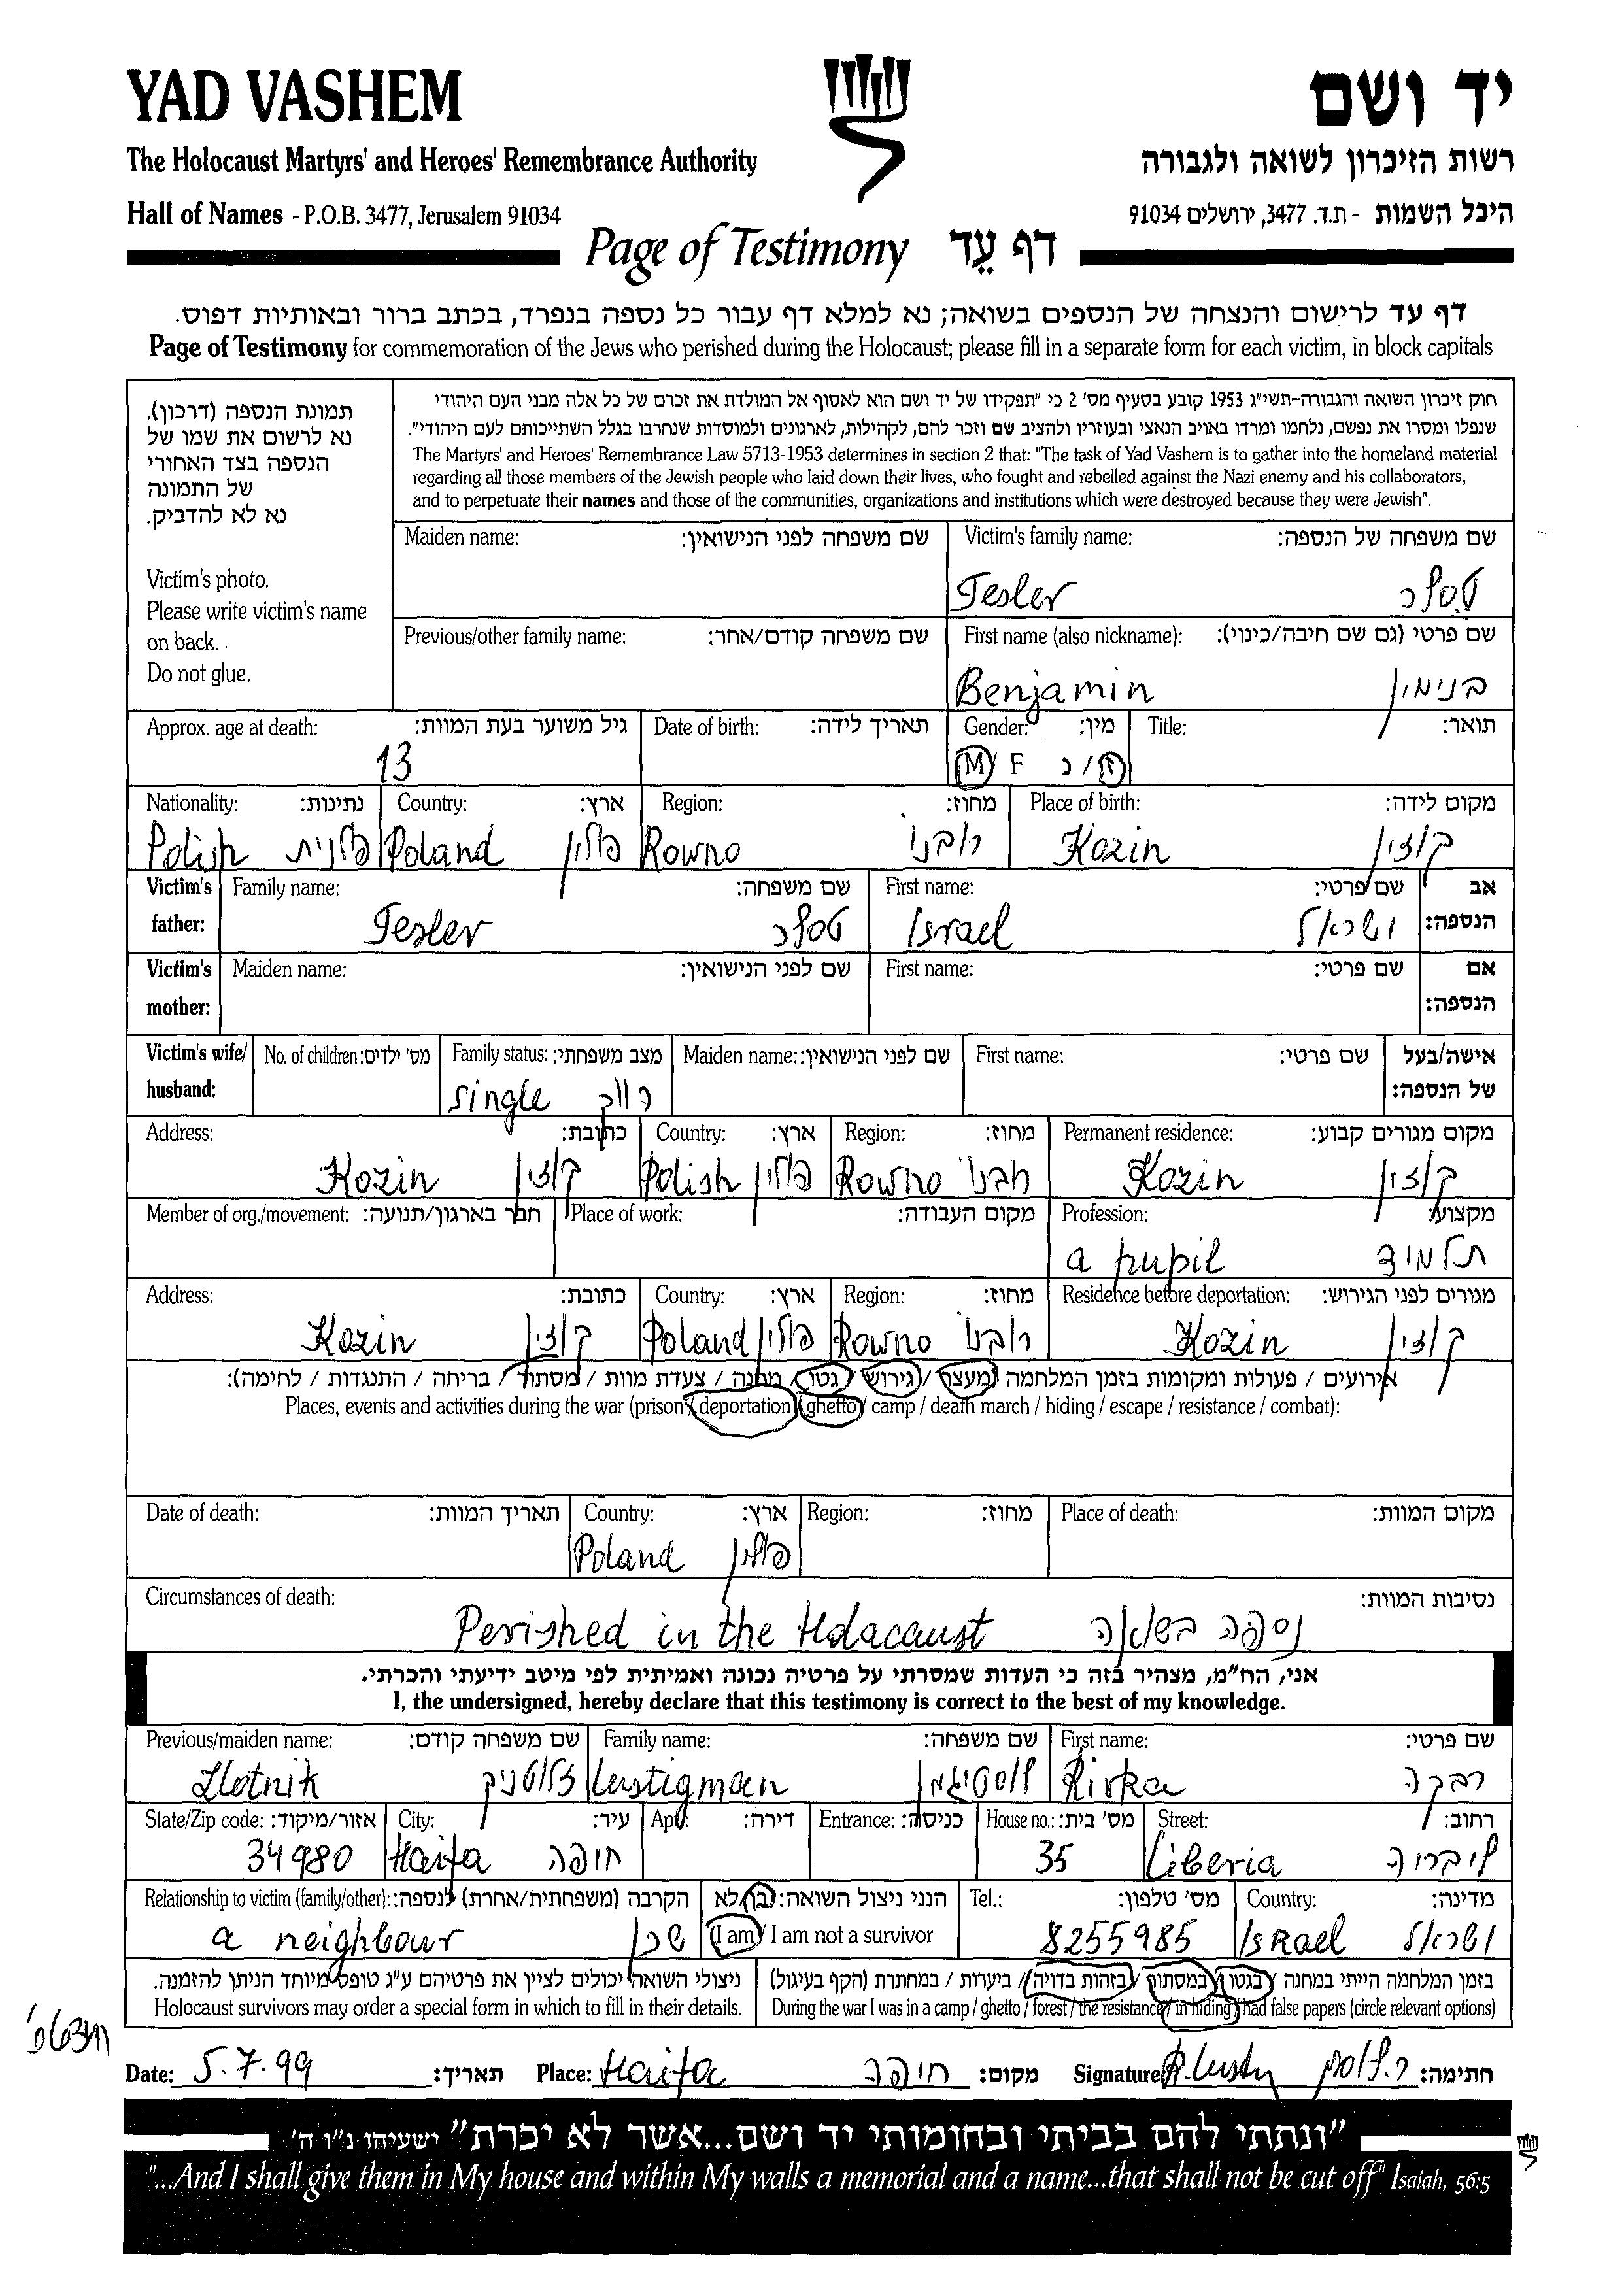 YAD VASHEM
יד ושם
The Holocaust Martyrs' and Heroes' Remembrance Authority
רשות הזיכרון לשואה ולגבורה
Hall of Names - P.O.B. 3477, Jerusalem 91034
היכל השמות - ת.ד. 3477, ירושלים 91034
Page of Testimony דף עֵד
דף עד לרישום והנצחה של הנספים בשואה; נא למלא דף עבור כל נספה בנפרד, בכתב ברור ובאותיות דפוס.
Page of Testimony for commemoration of the Jews who perished during the Holocaust; please fill in a separate form for each victim, in block capitals
תמונת הנספה (דרכון).
נא לרשום את שמו של
הנספה בצד האחורי
של התמונה
נא לא להדביק.
Victim's photo.
Please write victim's name
on back.
Do not glue.
חוק זיכרון השואה והגבורה-תשי"ג 1953 קובע בסעיף מס' 2 כי "תפקידו של יד ושם הוא לאסוף אל המולדת את זכרם של כל אלה מבני העם היהודי
שנפלו ומסרו את נפשם, נלחמו ומרדו באויב הנאצי ובעוזריו ולהציב שם וזכר להם, לקהילות, לארגונים ולמוסדות שנחרבו בגלל השתייכותם לעם היהודי".
The Martyrs' and Heroes' Remembrance Law 5713-1953 determines in section 2 that: "The task of Yad Vashem is to gather into the homeland material
regarding all those members of the Jewish people who laid down their lives, who fought and rebelled against the Nazi enemy and his collaborators,
and to perpetuate their names and those of the communities, organizations and institutions which were destroyed because they were Jewish".
Maiden name: שם משפחה לפני הנישואין: Victim's family name: שם משפחה של הנספה:
Tesler טסלר
Previous/other family name: שם משפחה קודם/אחר: First name (also nickname): שם פרטי (גם שם חיבה/כינוי):
Benjamin בנימין
Approx. age at death: גיל משוער בעת המוות: Date of birth: תאריך לידה: Gender: מין: Title: תואר:
13 M / F ז / נ
Nationality: נתינות: Country: ארץ: Region: מחוז: Place of birth: מקום לידה:
Polish פולנית Poland פולין Rowno רובנו Kozin קוזין
Victim's father: Family name: שם משפחה: First name: שם פרטי: אב הנספה:
Tesler טסלר Israel ישראל
Victim's mother: Maiden name: שם לפני הנישואין: First name: שם פרטי: אם הנספה:
Victim's wife/ husband: No. of children: מס' ילדים: Family status: מצב משפחתי: Maiden name: שם לפני הנישואין: First name: שם פרטי: אישה/בעל של הנספה:
single רווק
Address: כתובת: Country: ארץ: Region: מחוז: Permanent residence: מקום מגורים קבוע:
Kozin קוזין Polish פולין Rowno רובנו Kozin קוזין
Member of org./movement: חבר בארגון/תנועה: Place of work: מקום העבודה: Profession: מקצוע:
a pupil תלמיד
Address: כתובת: Country: ארץ: Region: מחוז: Residence before deportation: מגורים לפני הגירוש:
Kozin קוזין Poland פולין Rowno רובנו Kozin קוזין
אירועים / פעולות ומקומות בזמן המלחמה (מעצר / גירוש / גטו / מחנה / צעדת מוות / מסתור / בריחה / התנגדות / לחימה):
Places, events and activities during the war (prison / deportation / ghetto / camp / death march / hiding / escape / resistance / combat):
Date of death: תאריך המוות: Country: ארץ: Region: מחוז: Place of death: מקום המוות:
Poland פולין
Circumstances of death: נסיבות המוות:
Perished in the Holacaust נספה בשואה
אני, הח"מ, מצהיר בזה כי העדות שמסרתי על פרטיה נכונה ואמיתית לפי מיטב ידיעתי והכרתי.
I, the undersigned, hereby declare that this testimony is correct to the best of my knowledge.
Previous/maiden name: שם משפחה קודם: Family name: שם משפחה: First name: שם פרטי:
Zlotnik זלוטניק Lustigman לוסטיגמן Rivka רבקה
State/Zip code: אזור/מיקוד: City: עיר: Apt.: דירה: Entrance: כניסה: House no.: מס' בית: Street: רחוב:
34980 Haifa חיפה 35 Liberia ליבריה
Relationship to victim (family/other): הקרבה (משפחתית/אחרת) לנספה: הנני ניצול השואה: כן / לא Tel.: מס' טלפון: Country: מדינה:
a neighbour שכן I am / I am not a survivor 8255985 Israel ישראל
ניצולי השואה יכולים לציין את פרטיהם ע"ג טופס מיוחד הניתן להזמנה. בזמן המלחמה הייתי במחנה / בגטו / במסתור / בזהות בדויה / ביערות / במחתרת (הקף בעיגול)
Holocaust survivors may order a special form in which to fill in their details. During the war I was in a camp / ghetto / forest / the resistance / in hiding / had false papers (circle relevant options)
Date: 5.7.99 תאריך: Place: Haifa חיפה מקום: Signature: R. Lusty ר. לוסט חתימה:
"ונתתי להם בביתי ובחומותי יד ושם...אשר לא יכרת" ישעיהו נ"ו ה'
"...And I shall give them in My house and within My walls a memorial and a name...that shall not be cut off" Isaiah, 56:5